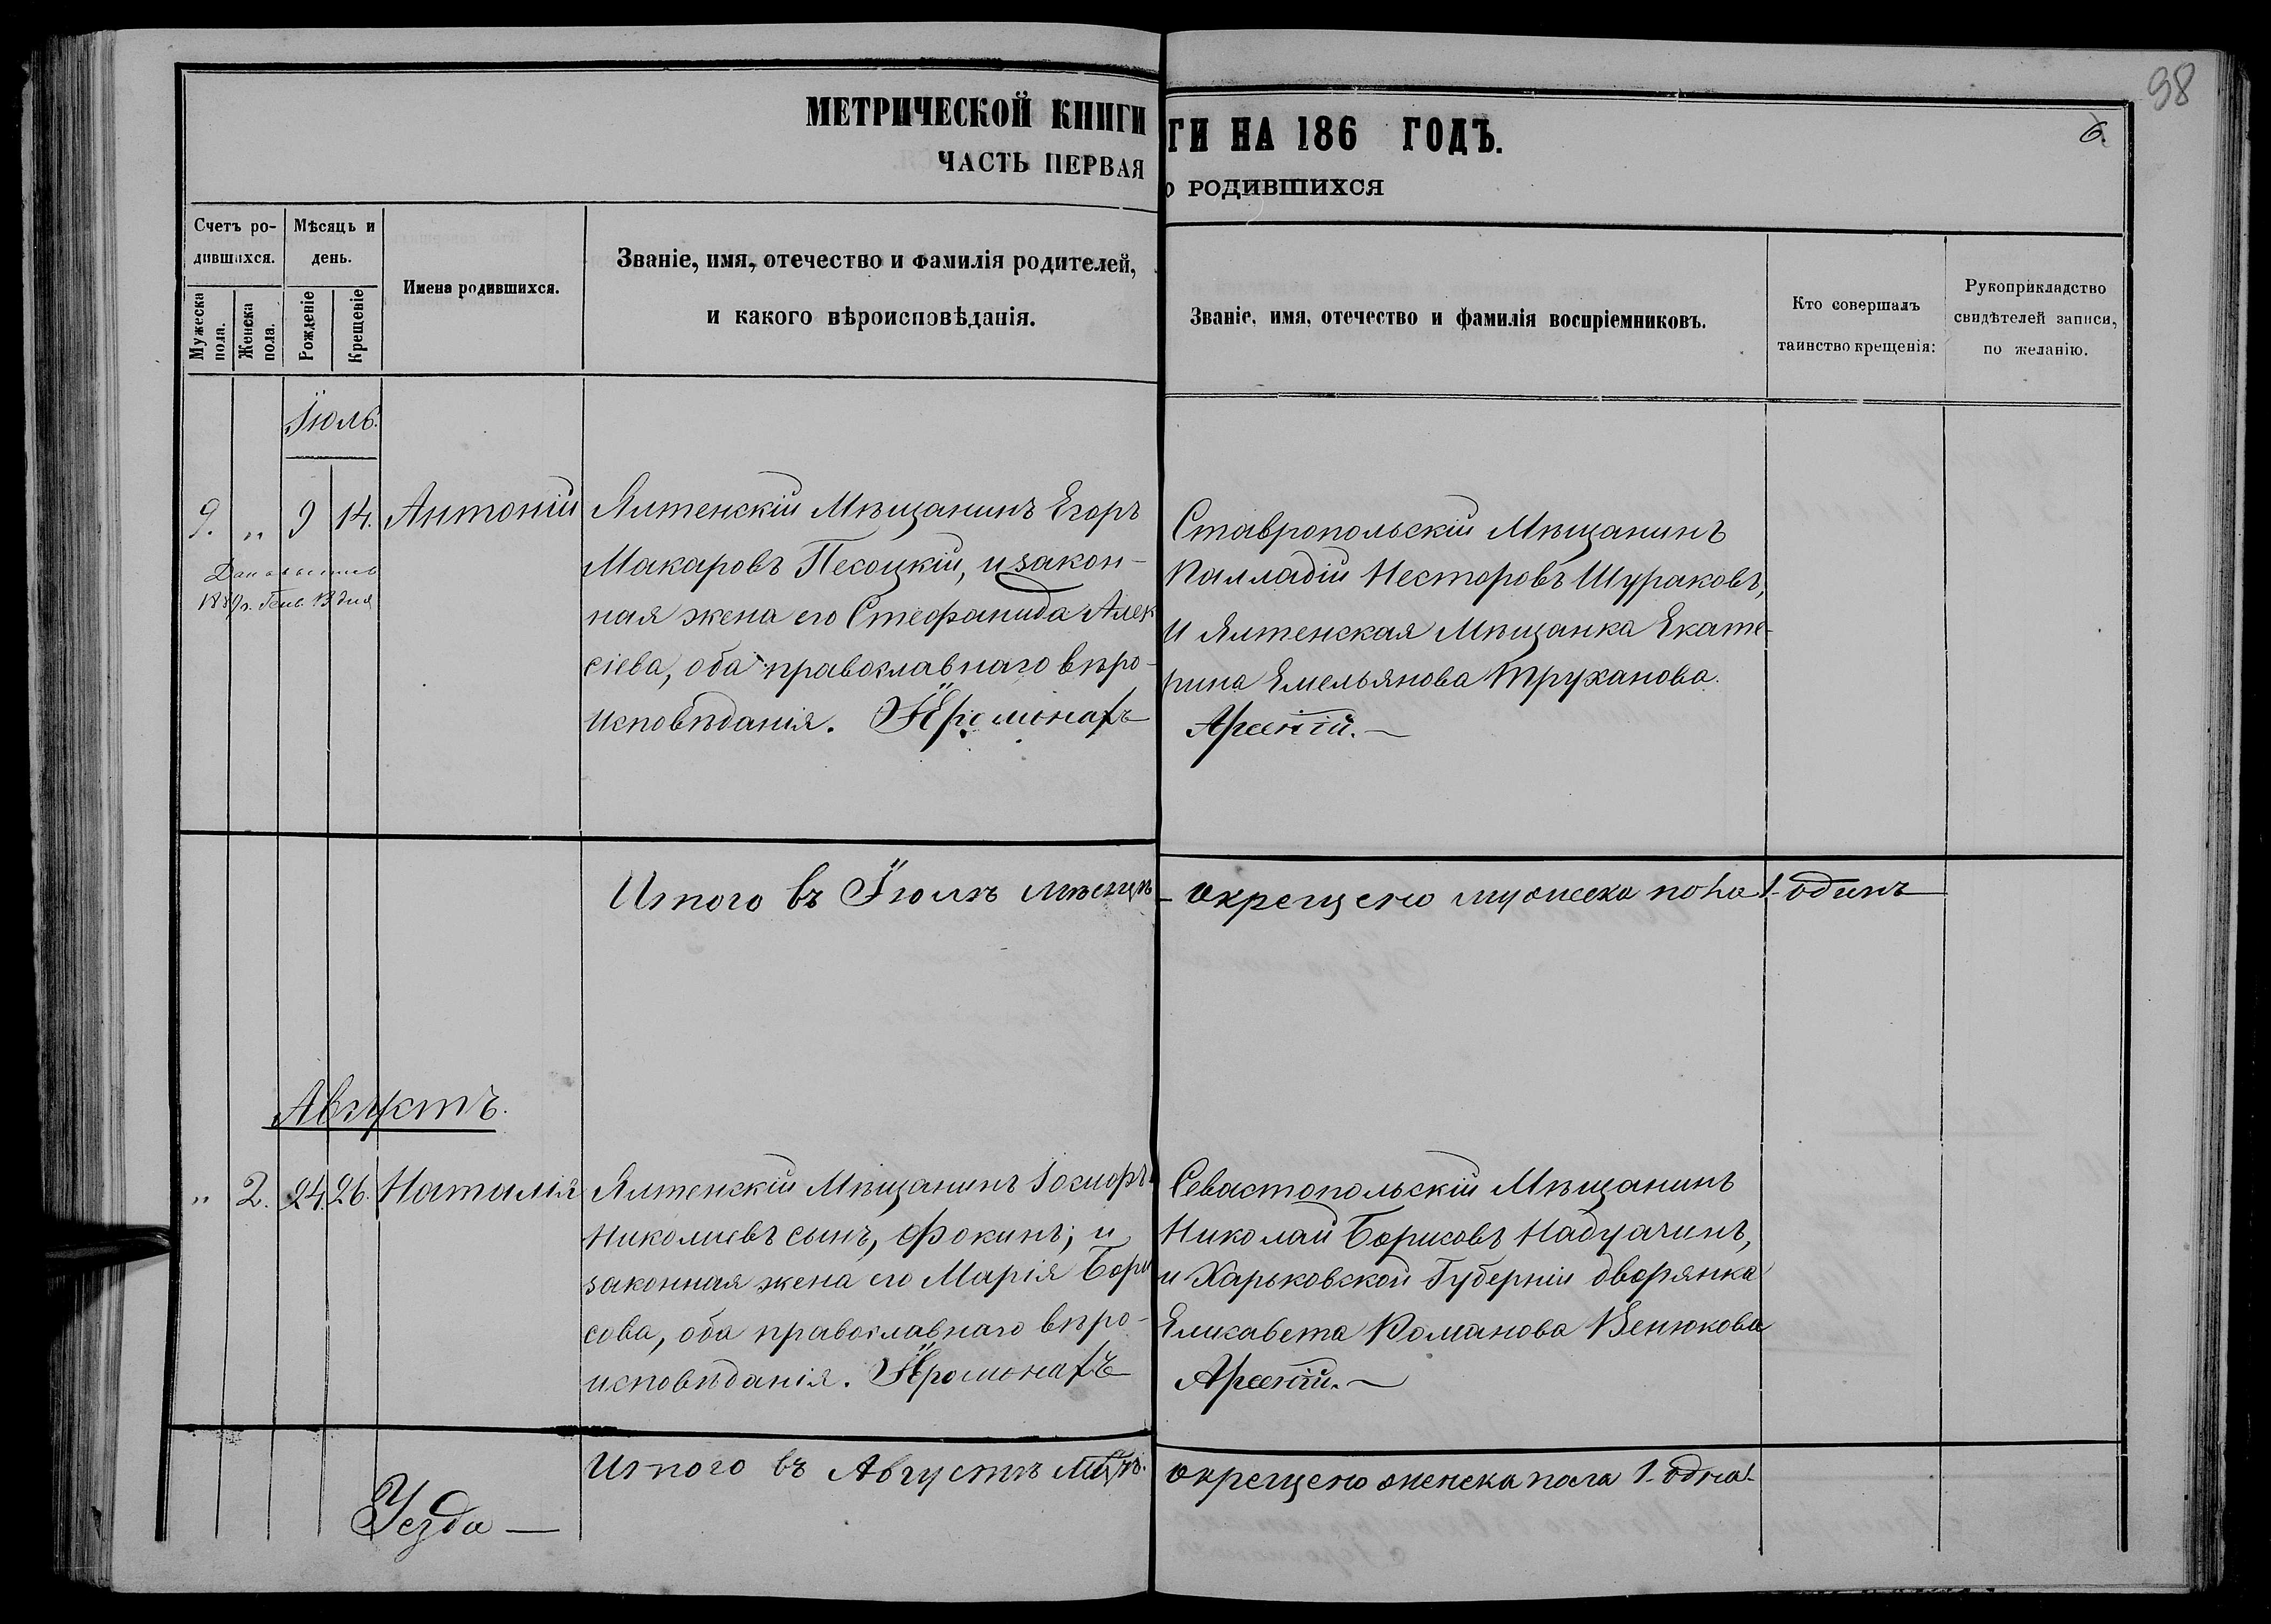 98
6.
МЕТРИЧЕСКОЙ КНИГИ
ГИ НА 186 ГОДЪ.
ЧАСТЬ ПЕРВАЯ
О РОДИВШИХСЯ
Счетъ ро-
дившихся.
Мужеска
пола.
Женска
пола.
Мѣсяць и
день.
Рожденіе
Крещеніе
Имена родившихся.
Званіе, имя, отечество и фамилія родителей,
и какого вѣроисповѣданія.
Званіе, имя, отечество и фамилія воспріемниковъ.
Кто совершалъ
таинство крещенія:
Рукоприкладство
свидѣтелей записи,
по желанію.
Іюль.
9. " 9 14. Антоній
18 г. Генв. 13 дня
Ялтенскій Мѣщанинъ Егоръ
Макаровъ Песоцкій, и закон-
ная жена его Стефанида Алек
сіева, оба православнаго вѣро-
исповѣданія. Іеромонахъ
Ставропольскій Мѣщанинъ
Палладій Несторовъ Шураковъ,
и Ялтенская Мѣщанка Екате-
рина Емельянова Труханова.
Арсеній.
Итого въ Іюлѣ мѣсяцѣ
окрещено мужеска пола 1. одинъ
Августъ.
" 2. 24. 26. Наталія
Ялтенскій Мѣщанинъ Іосифъ
Николаевъ сынъ, Фокинъ; и
законная жена его Марія Бори
сова, оба православнаго вѣро-
исповѣданія. Іеромонахъ
Севастопольскій Мѣщанинъ
Николай Борисовъ
и Харьковской Губерніи дворянка
Елисавета Романова Венюкова
Арсеній.
Итого въ Августѣ мцѣ.
окрещено женска пола 1. одна
Уезда